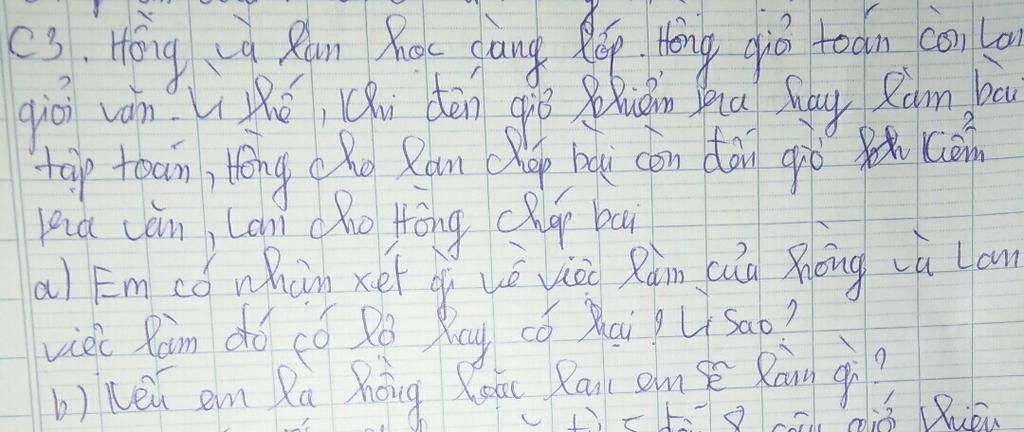 C3. Hồng và Lan học cùng lớp. Hồng giỏi toán còn Lan
giỏi văn. Vì thế, khi đến giờ kiểm tra hay làm bài
tập toán, Hồng cho Lan chép bài còn đến giờ kiểm
tra văn, Lan cho Hồng chép bài
a) Em có nhận xét gì về việc làm của Hồng và Lan
việc làm đó có lợi hay có hại? Vì sao?
b) Nếu em là Hồng hoặc Lan em sẽ làm gì?